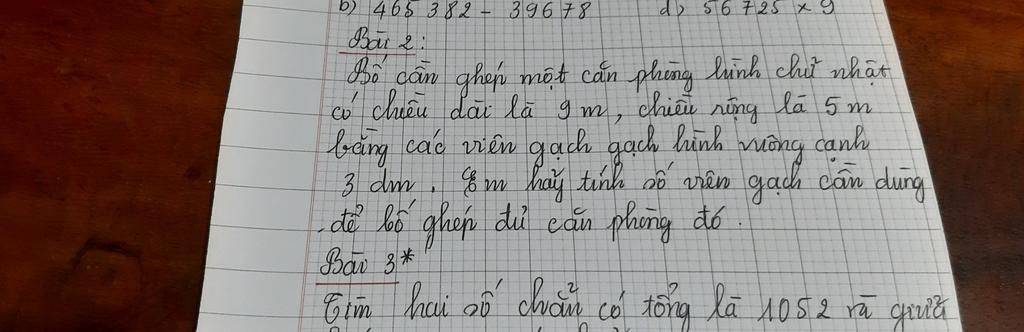 b) 465 382 - 39678 d) 56 725 x 9
Bài 2:
Bố cần ghép một căn phòng hình chữ nhật
có chiều dài là 9 m, chiều rộng là 5 m
bằng các viên gạch gạch hình vuông cạnh
3 dm. Em hãy tính số viên gạch cần dùng
để bố ghép đủ căn phòng đó.
Bài 3*
Tìm hai số chẵn có tổng là 1052 và giữa